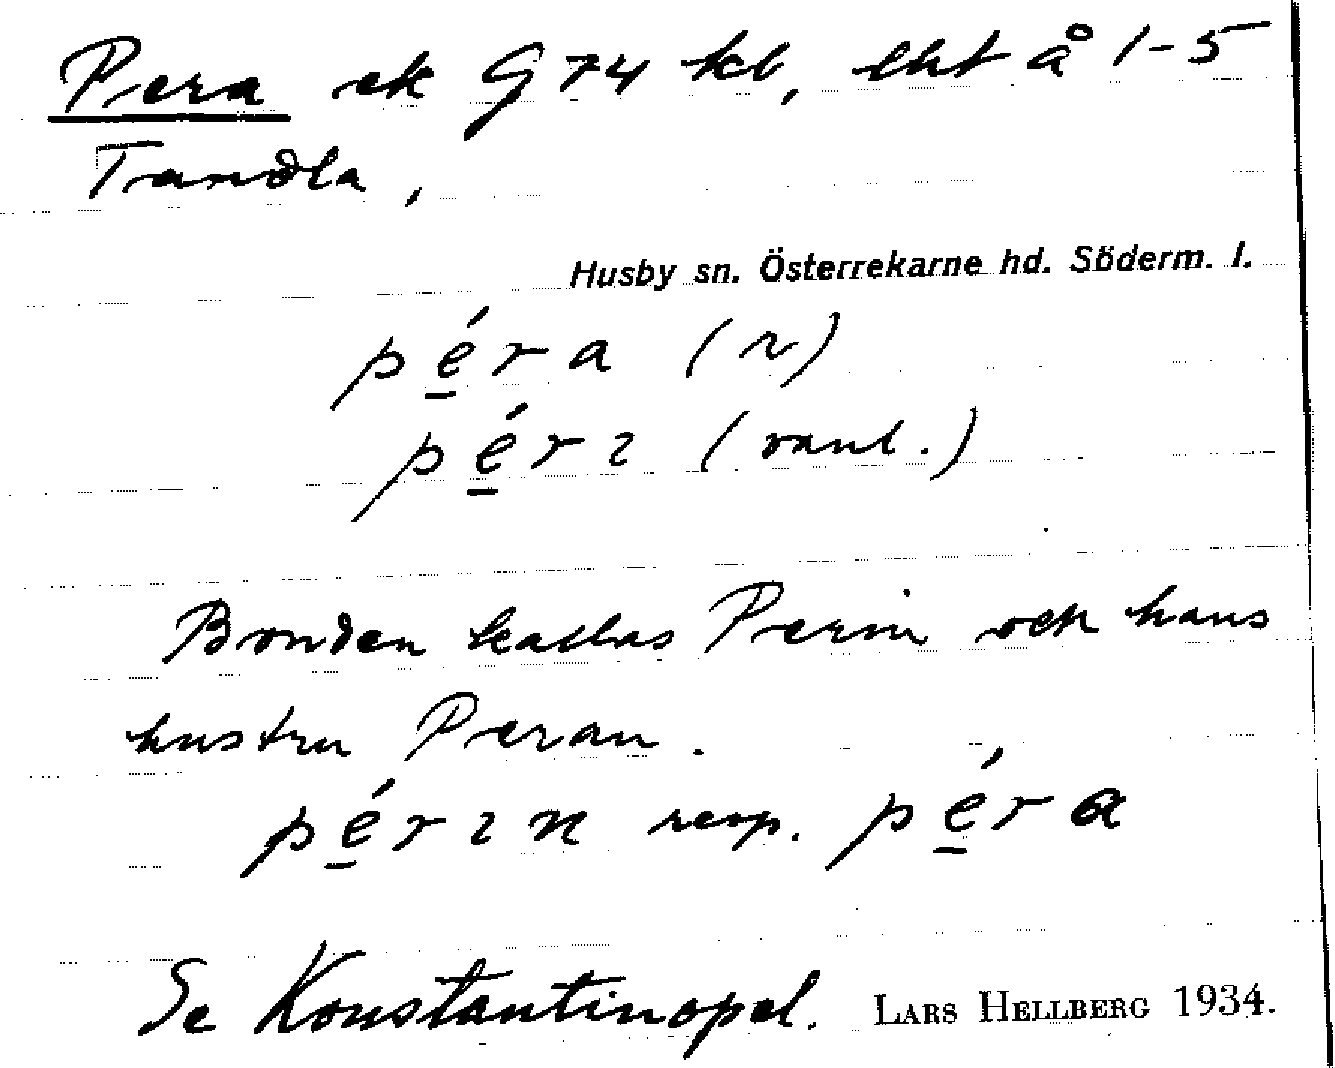 Pera ek G 74 kb, lht å 1-5
Tandla,
Husby sn. Österrekarne hd. Söderm. l.
pé̱ra (r)
pé̱rɩ (vanl.)
Bonden kallas Perin och hans
hustru Peran.
pé̱rɩn resp. pé̱ra
Se Konstantinopel. LARS HELLBERG 1934.